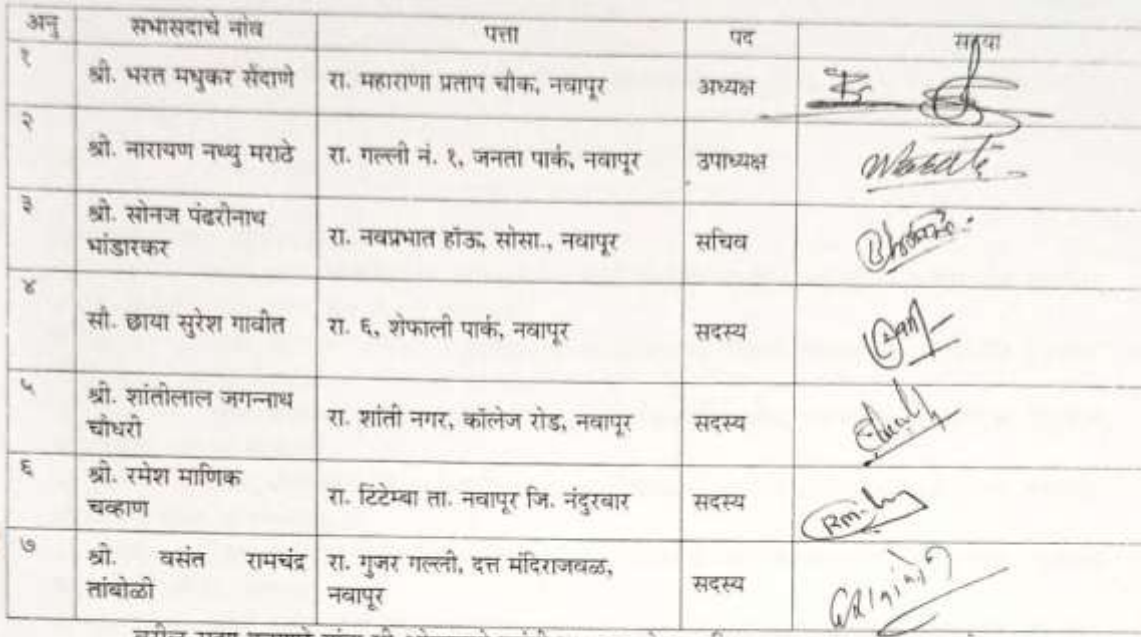 अनु सभासदाचे नांव पत्ता पद सह्या
१ श्री. भरत मधुकर सैंदाणे रा. महाराणा प्रताप चौक, नवापूर अध्यक्ष
२ श्री. नारायण नथ्थु मराठे रा. गल्ली नं. १, जनता पार्क, नवापूर उपाध्यक्ष
३ श्री. सोनज पंढरीनाथ
भांडारकर रा. नवप्रभात हॉऊ, सोसा., नवापूर सचिव
४ सौ. छाया सुरेश गावीत रा. ६, शेफाली पार्क, नवापूर सदस्य
५ श्री. शांतीलाल जगन्नाथ
चौधरी रा. शांती नगर, कॉलेज रोड, नवापूर सदस्य
६ श्री. रमेश माणिक
चव्हाण रा. टिंटेम्बा ता. नवापूर जि. नंदुरबार सदस्य
७ श्री. वसंत रामचंद्र रा. गुजर गल्ली, दत्त मंदिराजवळ,
तांबोळी नवापूर सदस्य